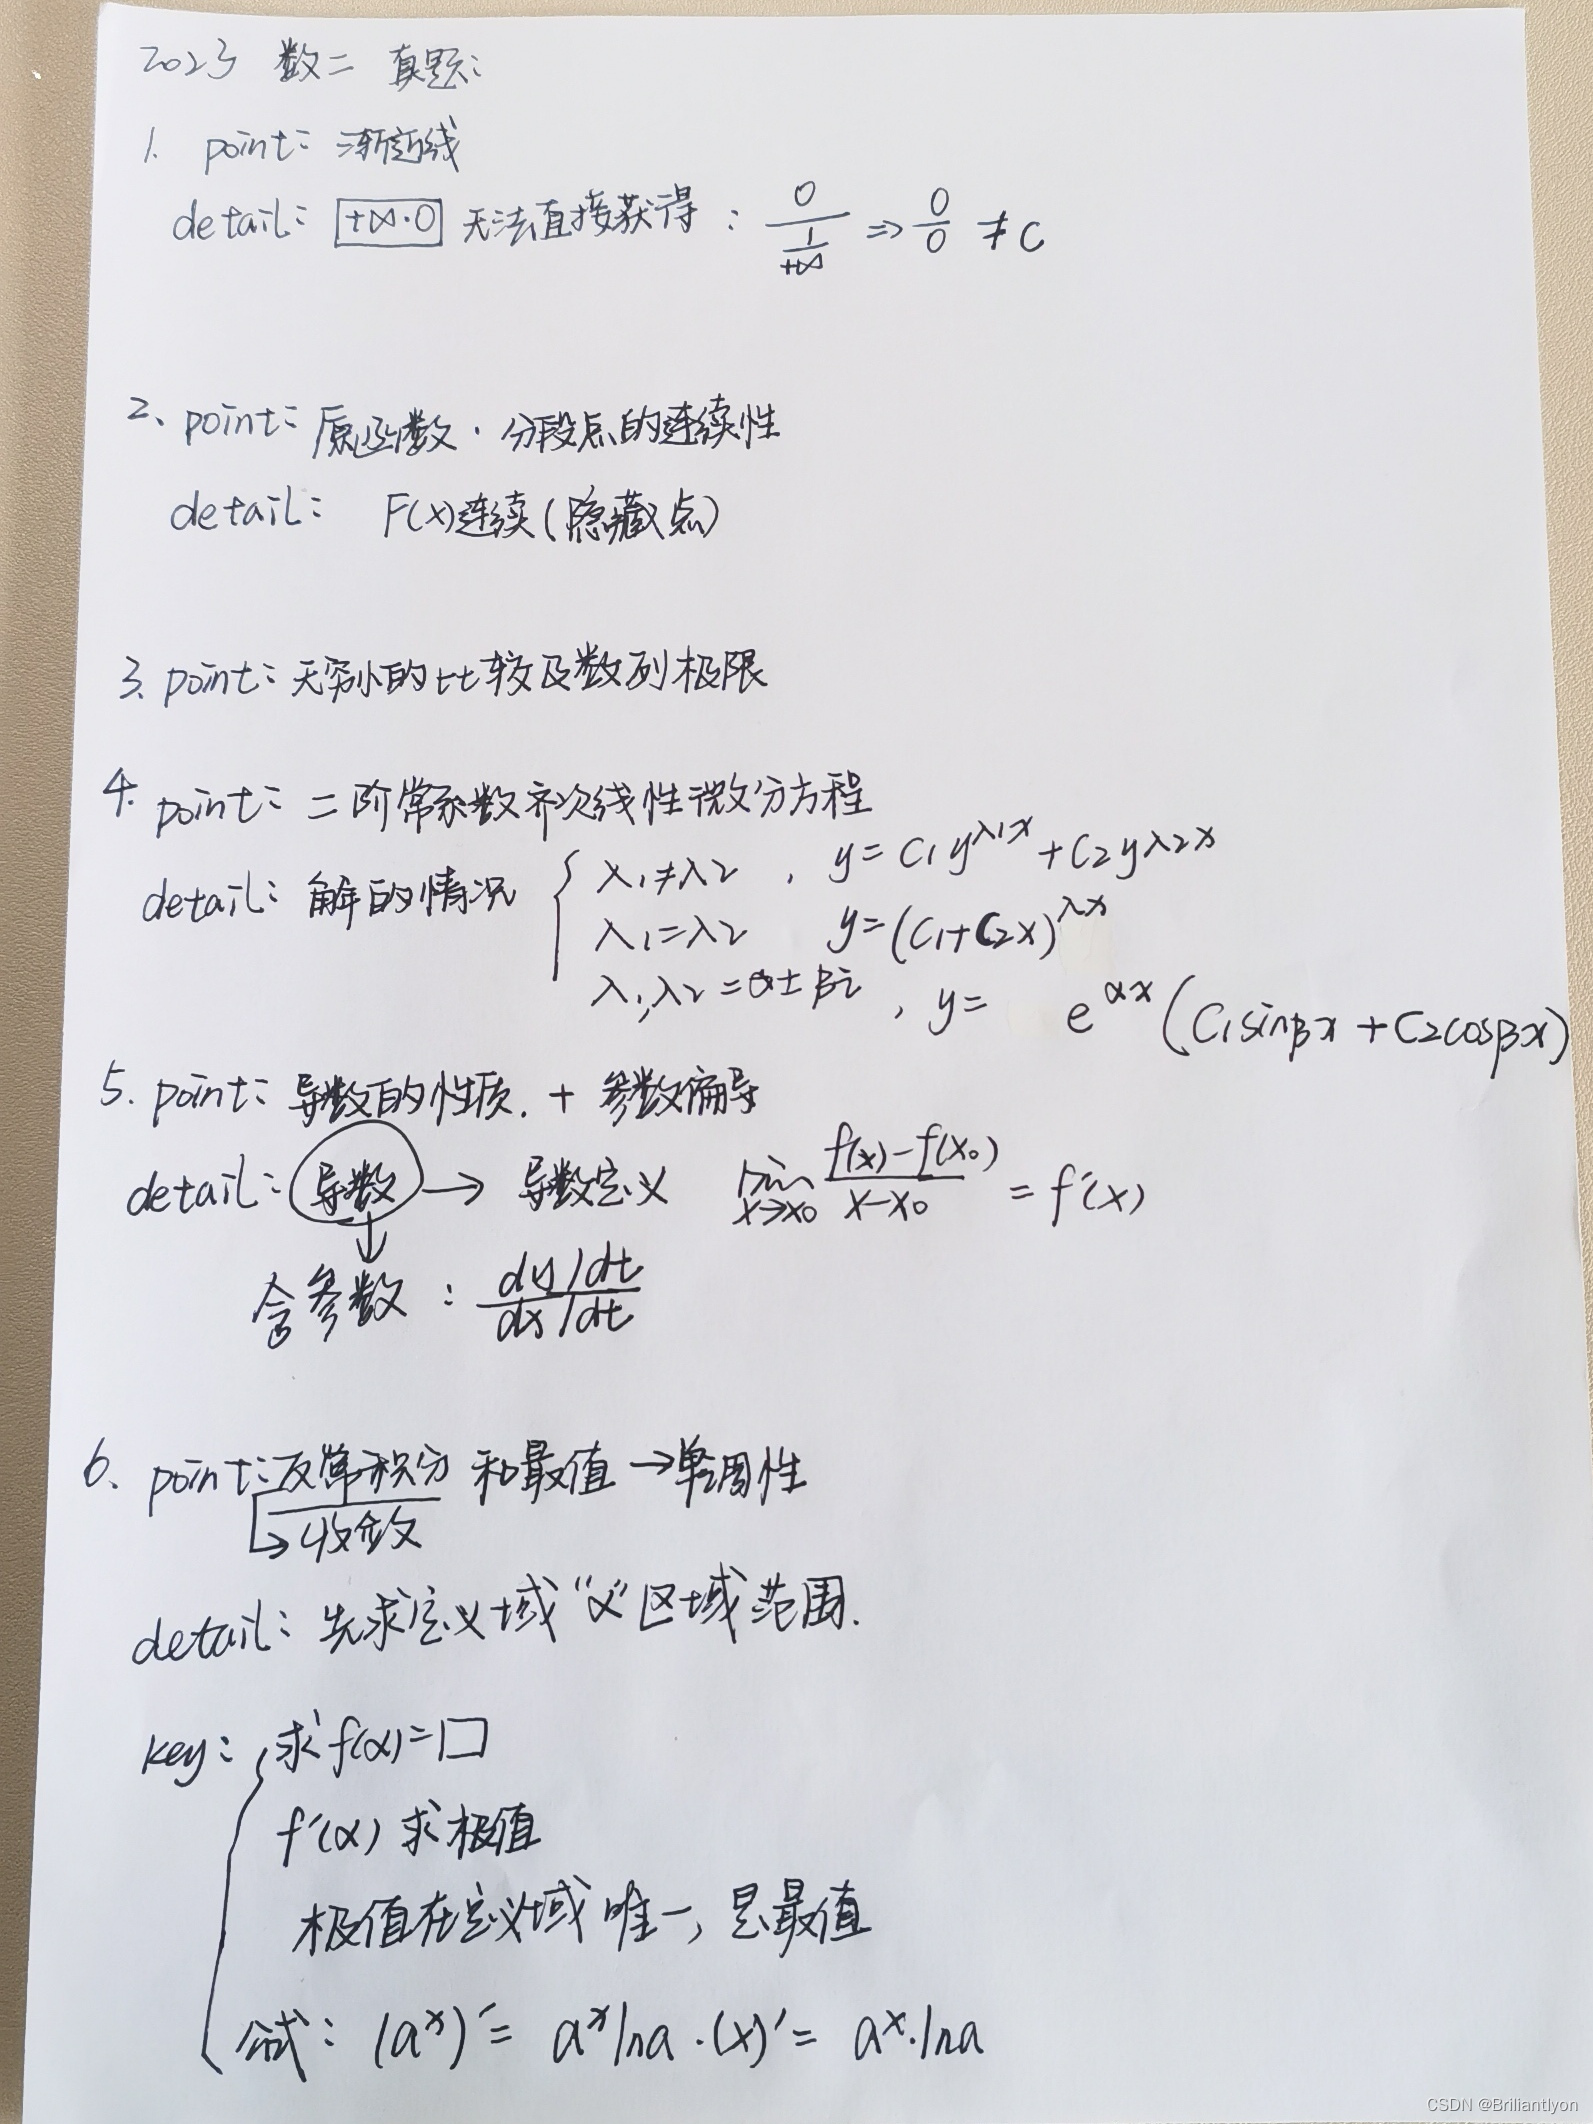 2023 数二 真题:
1. point: 渐近线
detail: +∞·0 无法直接获得 : 0/(1/+∞) => 0/0 ≠ C
2、point: 原函数·分段点的连续性
detail: F(x)连续(隐藏点)
3. point: 无穷小的比较及数列极限
4. point: 二阶常系数齐次线性微分方程
detail: 解的情况 { λ1≠λ2 , y= C1y^λ1x + C2y^λ2x
λ1=λ2 y=(C1+C2x)^λx
λ1,λ2 = α±βi , y= e^αx (C1sinβx + C2cosβx)
5. point: 导数的性质. + 参数偏导
detail: 导数 → 导数定义 lim x→x0 (f(x)-f(x0))/(x-x0) = f'(x)
↓
含参数 : (dy/dt)/(dx/dt)
6、point: 反常积分 和最值 → 单调性
↳ 收敛
detail: 先求定义域“α”区域范围.
key: { 求 f(α)=口
f'(α) 求极值
极值在定义域 唯一, 是最值
公式: (a^x)' = a^x lna·(x)' = a^x·lna
CSDN @Briliantlyon